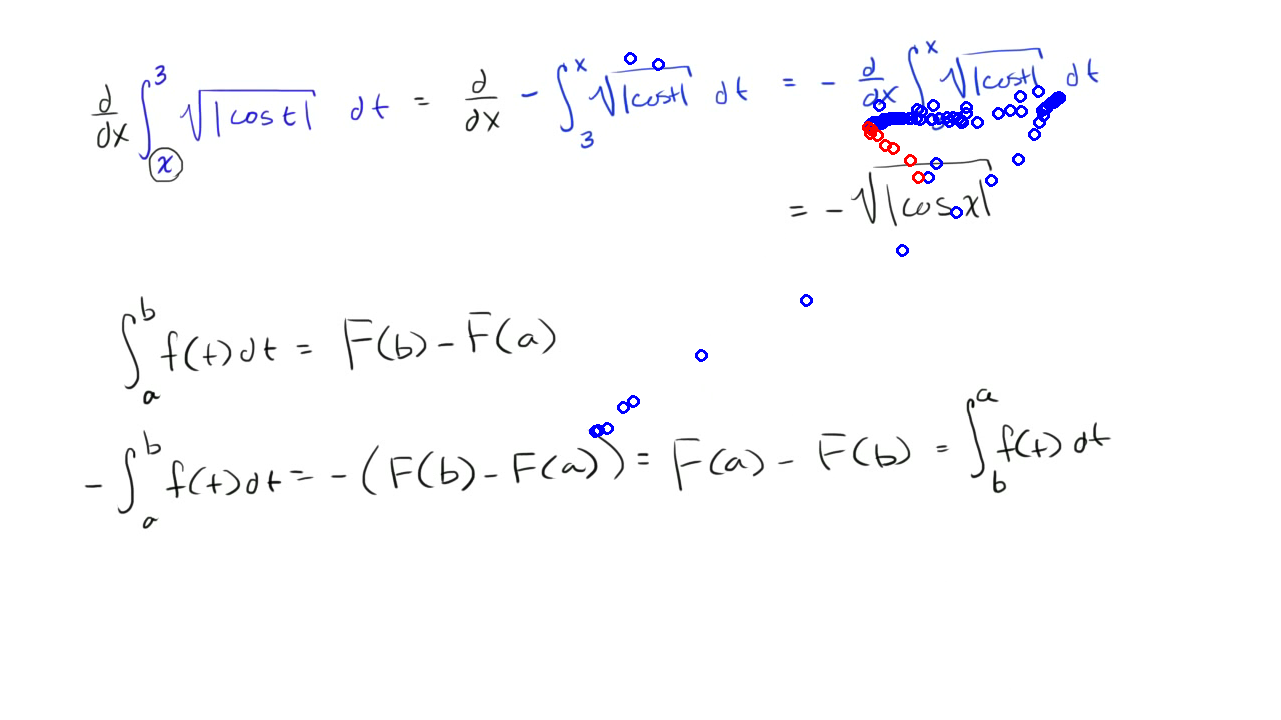 d/dx ∫_x^3 √|cos t| dt = d/dx - ∫_3^x √|cost| dt = - d/dx ∫^x √|cost| dt
= - √|cos x|
∫_a^b f(t) dt = F(b) - F(a)
- ∫_a^b f(t) dt = - (F(b) - F(a)) = F(a) - F(b) = ∫_b^a f(t) dt